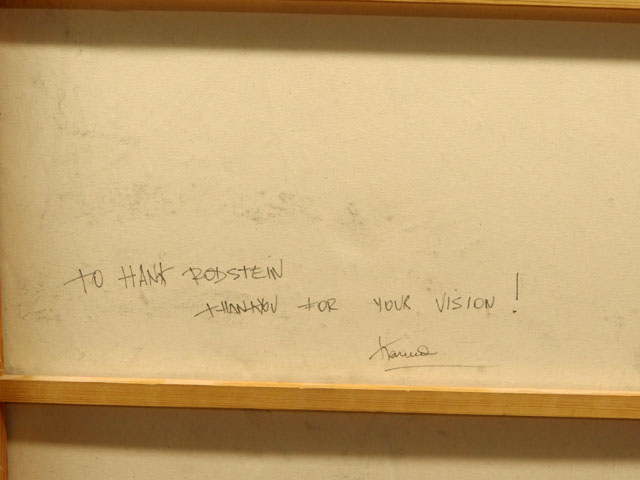 TO HANK RODSTEIN
THANKYOU FOR YOUR VISION!